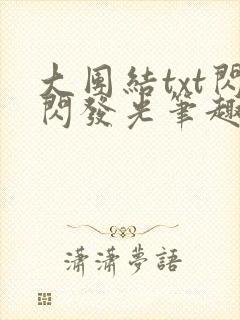 大團結txt閃
閃發光筆趣
瀟瀟夢語